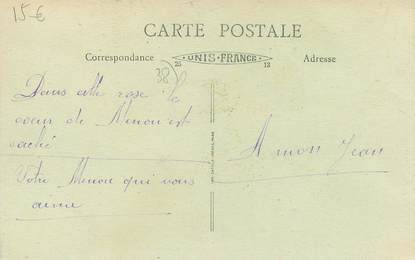 15 €
CARTE POSTALE
Correspondance
UNIS-FRANCE
Adresse
38
Dans cette rose le
coeur de Menou est
caché
Votre Menou qui vous
aime
A mon Jean